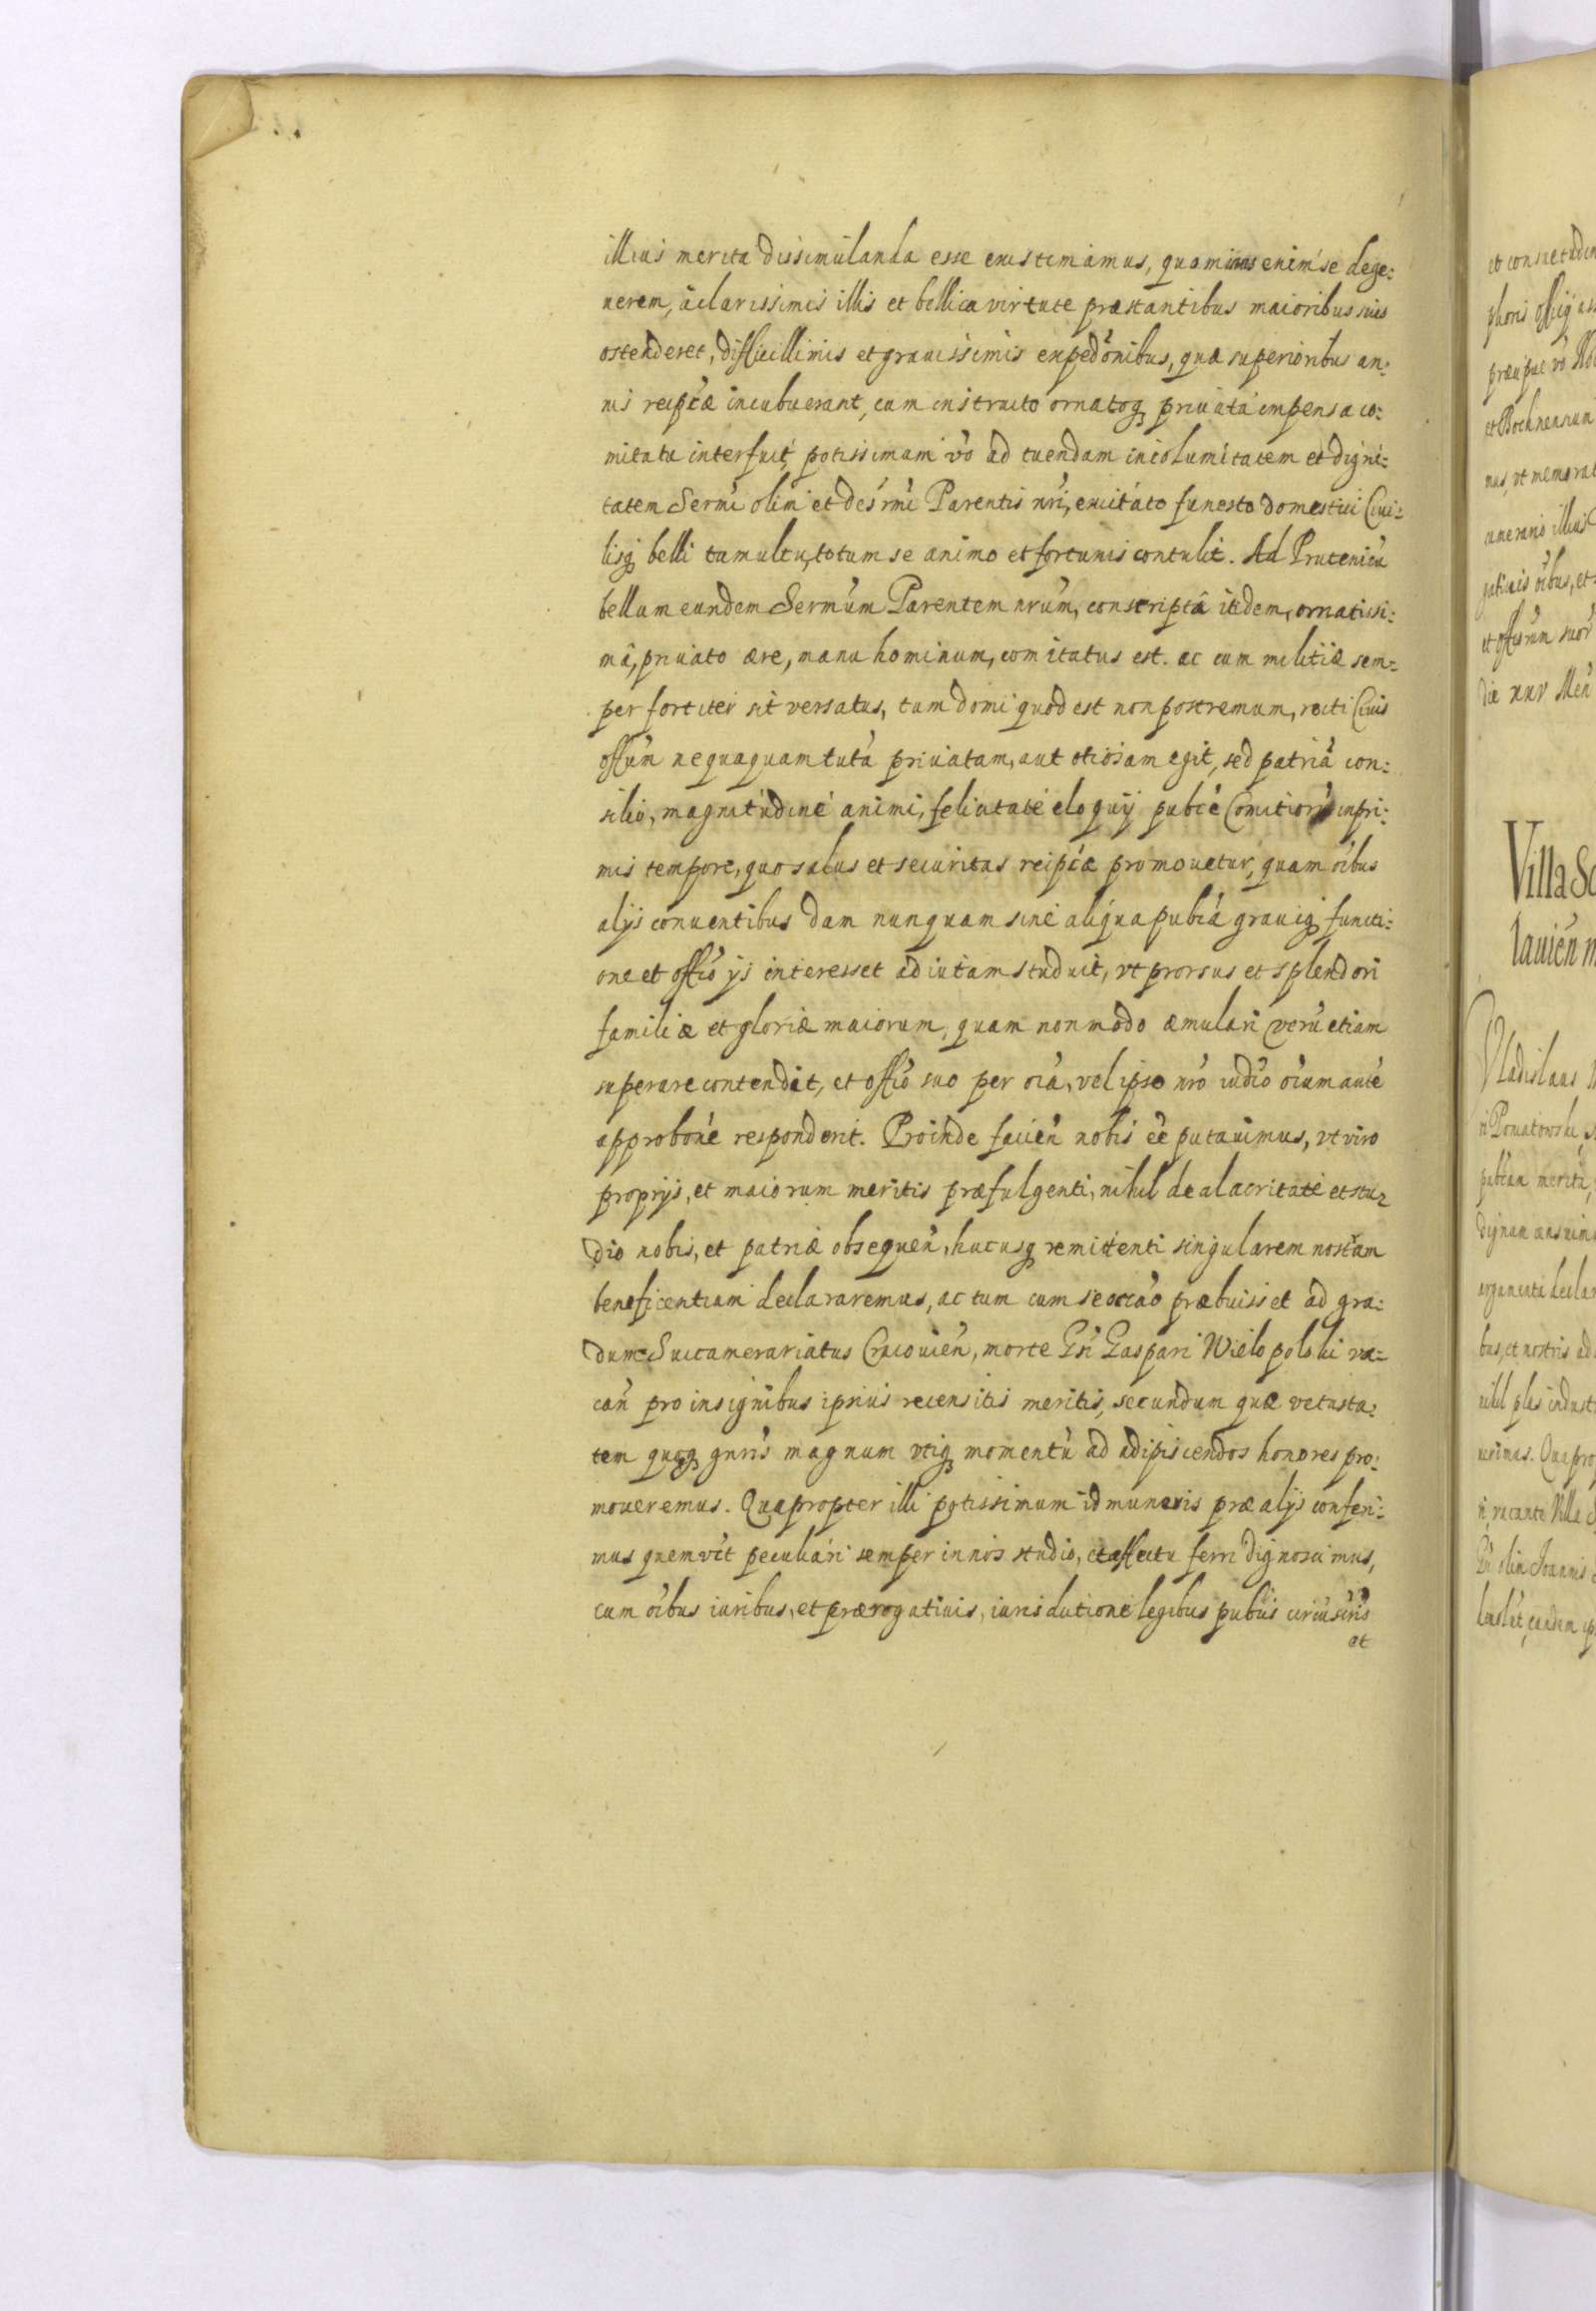 illius merita dissimulanda esse existimamus, quominus enim se dege:
nerem, à clarissimis illis et bellica virtute præstantibus maioribus suis
ostenderet, difficillimis et grauissimis expedõnibus, quæ superioribus an:
nis reipcæ incubuerant, cum instructo ornatoq priuatá impensa co:
mitatu interfuit, potissimam vò ad tuendam incolumitatem et digni:
tatem Sermi olim et desrmi Parentis nri, excitato funesto domestici Ciui:
lisq belli tumultu, totum se animo et fortunis contulit. Ad Prutenicũ
bellum eundem Sermum Parentem nrum, conscriptâ itidem, ornatissi:
mâ, priuato ære, manu hominum, comitatus est. ac cum militiæ sem:
per fortiter sit versatus, tum domi quod est non postremum, recti Ciuis
offum nequaquam tutá priuatam, aut otiosam egit, sed patriã con:
silio, magnitudine animi, felicitate eloquij pubce Comitiorũ inpri:
mis tempore, quo salus et securitas reipcæ promouetur, quam oibus
alijs conuentibus dum nunquam sine aliqua pubca grauiq functi:
one et officò ijs interesset adiutam studuit, vt prorsus et splendori
familiæ et gloriæ maiorum, quam nonmodo æmulari verũ etiam
superare contendit, et officò suo per oia, vel ipso nro iudicò oium aute
approbone responderit. Proinde facien nobis ee putauimus, vt viro
proprijs, et maiorum meritis præfulgenti, nihil de alacritate et stu:
dio nobis, et patriæ obsequen, hucusq remittenti singularem nostram
beneficentiam declararemus, ac tum cum se occao præbuisset ad gra:
dum Succamerariatus Cracouien, morte Gsi Gaspari Wielopolski va:
can pro insignibus ipsius recensitis meritis, secundum quæ vetusta:
tem quoq gnris magnum vtiq momentũ ad adipiscendos honores pro:
moueremus. Quapropter illi potissimum id muneris præ alijs conferi:
mus quem vti peculiari semper in nos studio, et affectu ferri dignoscimus,
cum oibus iuribus, et prærogatiuis, iurisdictione legibus pubcis
et
et consuetudin
præcipue vo
et Bochnensium
nus, vt memorat
camerario illius
gatiuis oibus, et
et offcrum suor
die xxv Men
Villa Sc
lauien m
Vladislaus
ri Poniatowski
pubcan merita,
dignam censuim
argumenta declar
bus, et nostris ad
nihil plus indust
uerimus. Quapro
ri, vacante Villa
Gsi olim Joannis